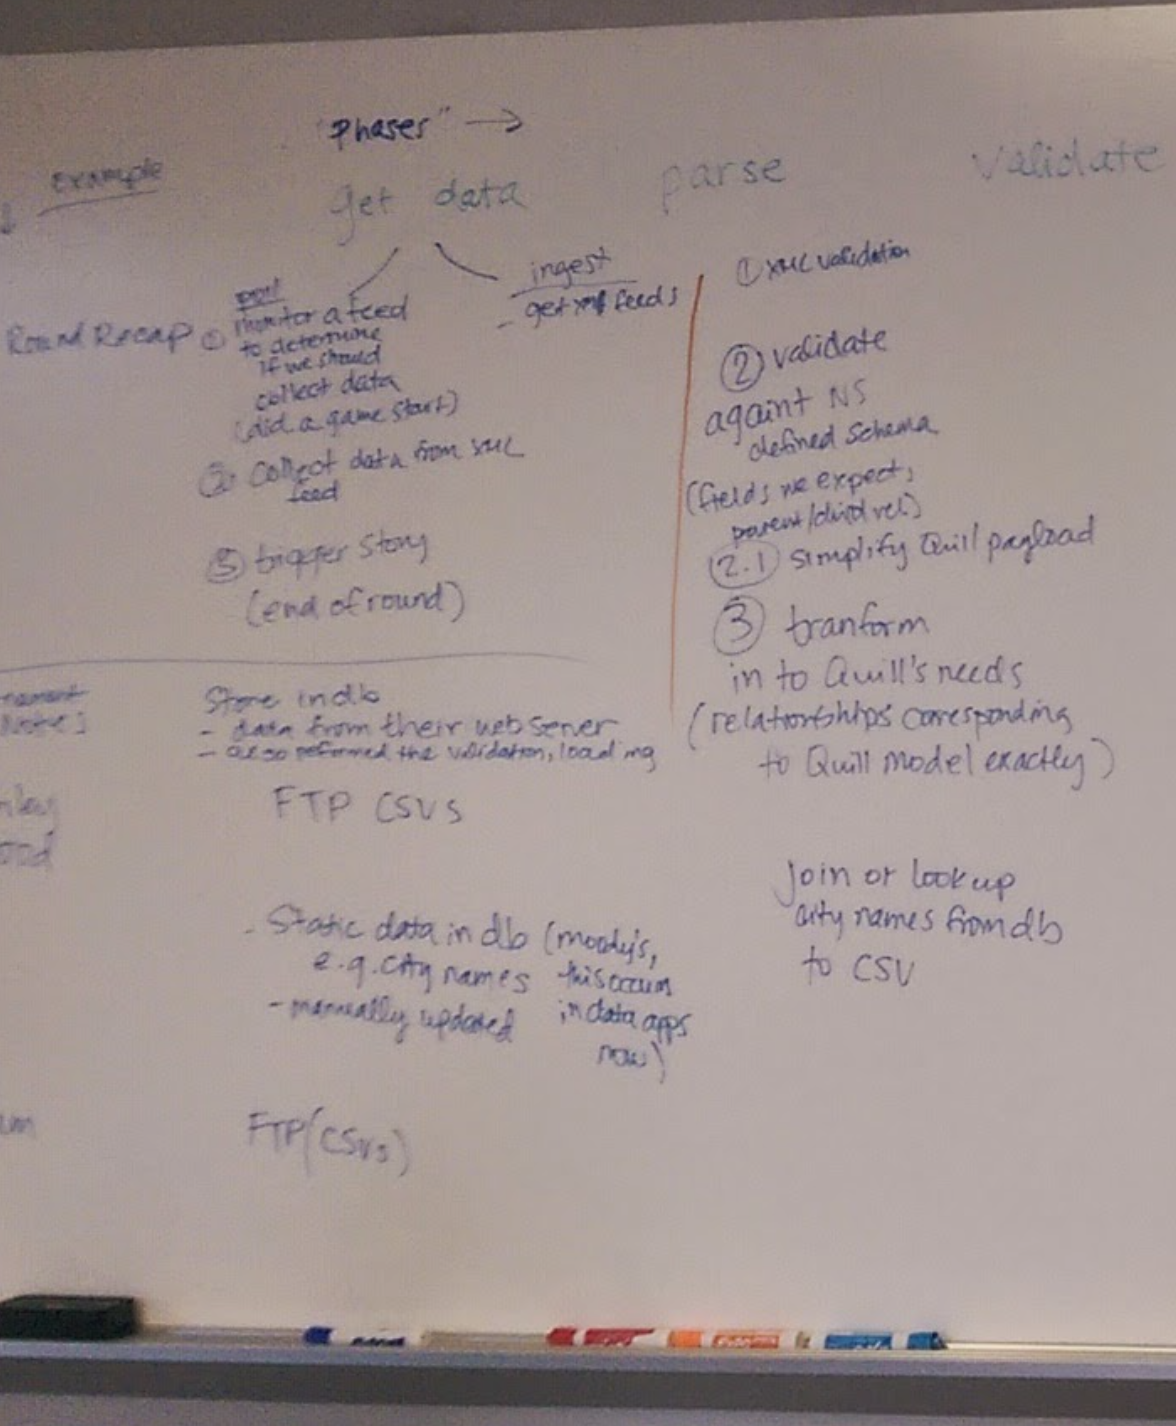 "Phases" →
example
get data
parse
validate
poll
monitor a feed
to determine
if we should
collect data
(did a game start)
ingest
- get xml feeds
Round Recap ①
② collect data from XML
feed
③ trigger story
(end of round)
① XML validation
② validate
againt NS
defined schema
(fields we expect,
parent/child rel)
2.1 simplify Quill payload
③ tranform
in to Quill's needs
(relationships corresponding
to Quill model exactly)
Store in db
- data from their web server
- also peformed the validation, loading
FTP CSVs
- Static data in db (moody's,
e.g. city names this occurs
- manually updated in data apps
now)
Join or lookup
city names from db
to CSV
FTP (CSVs)